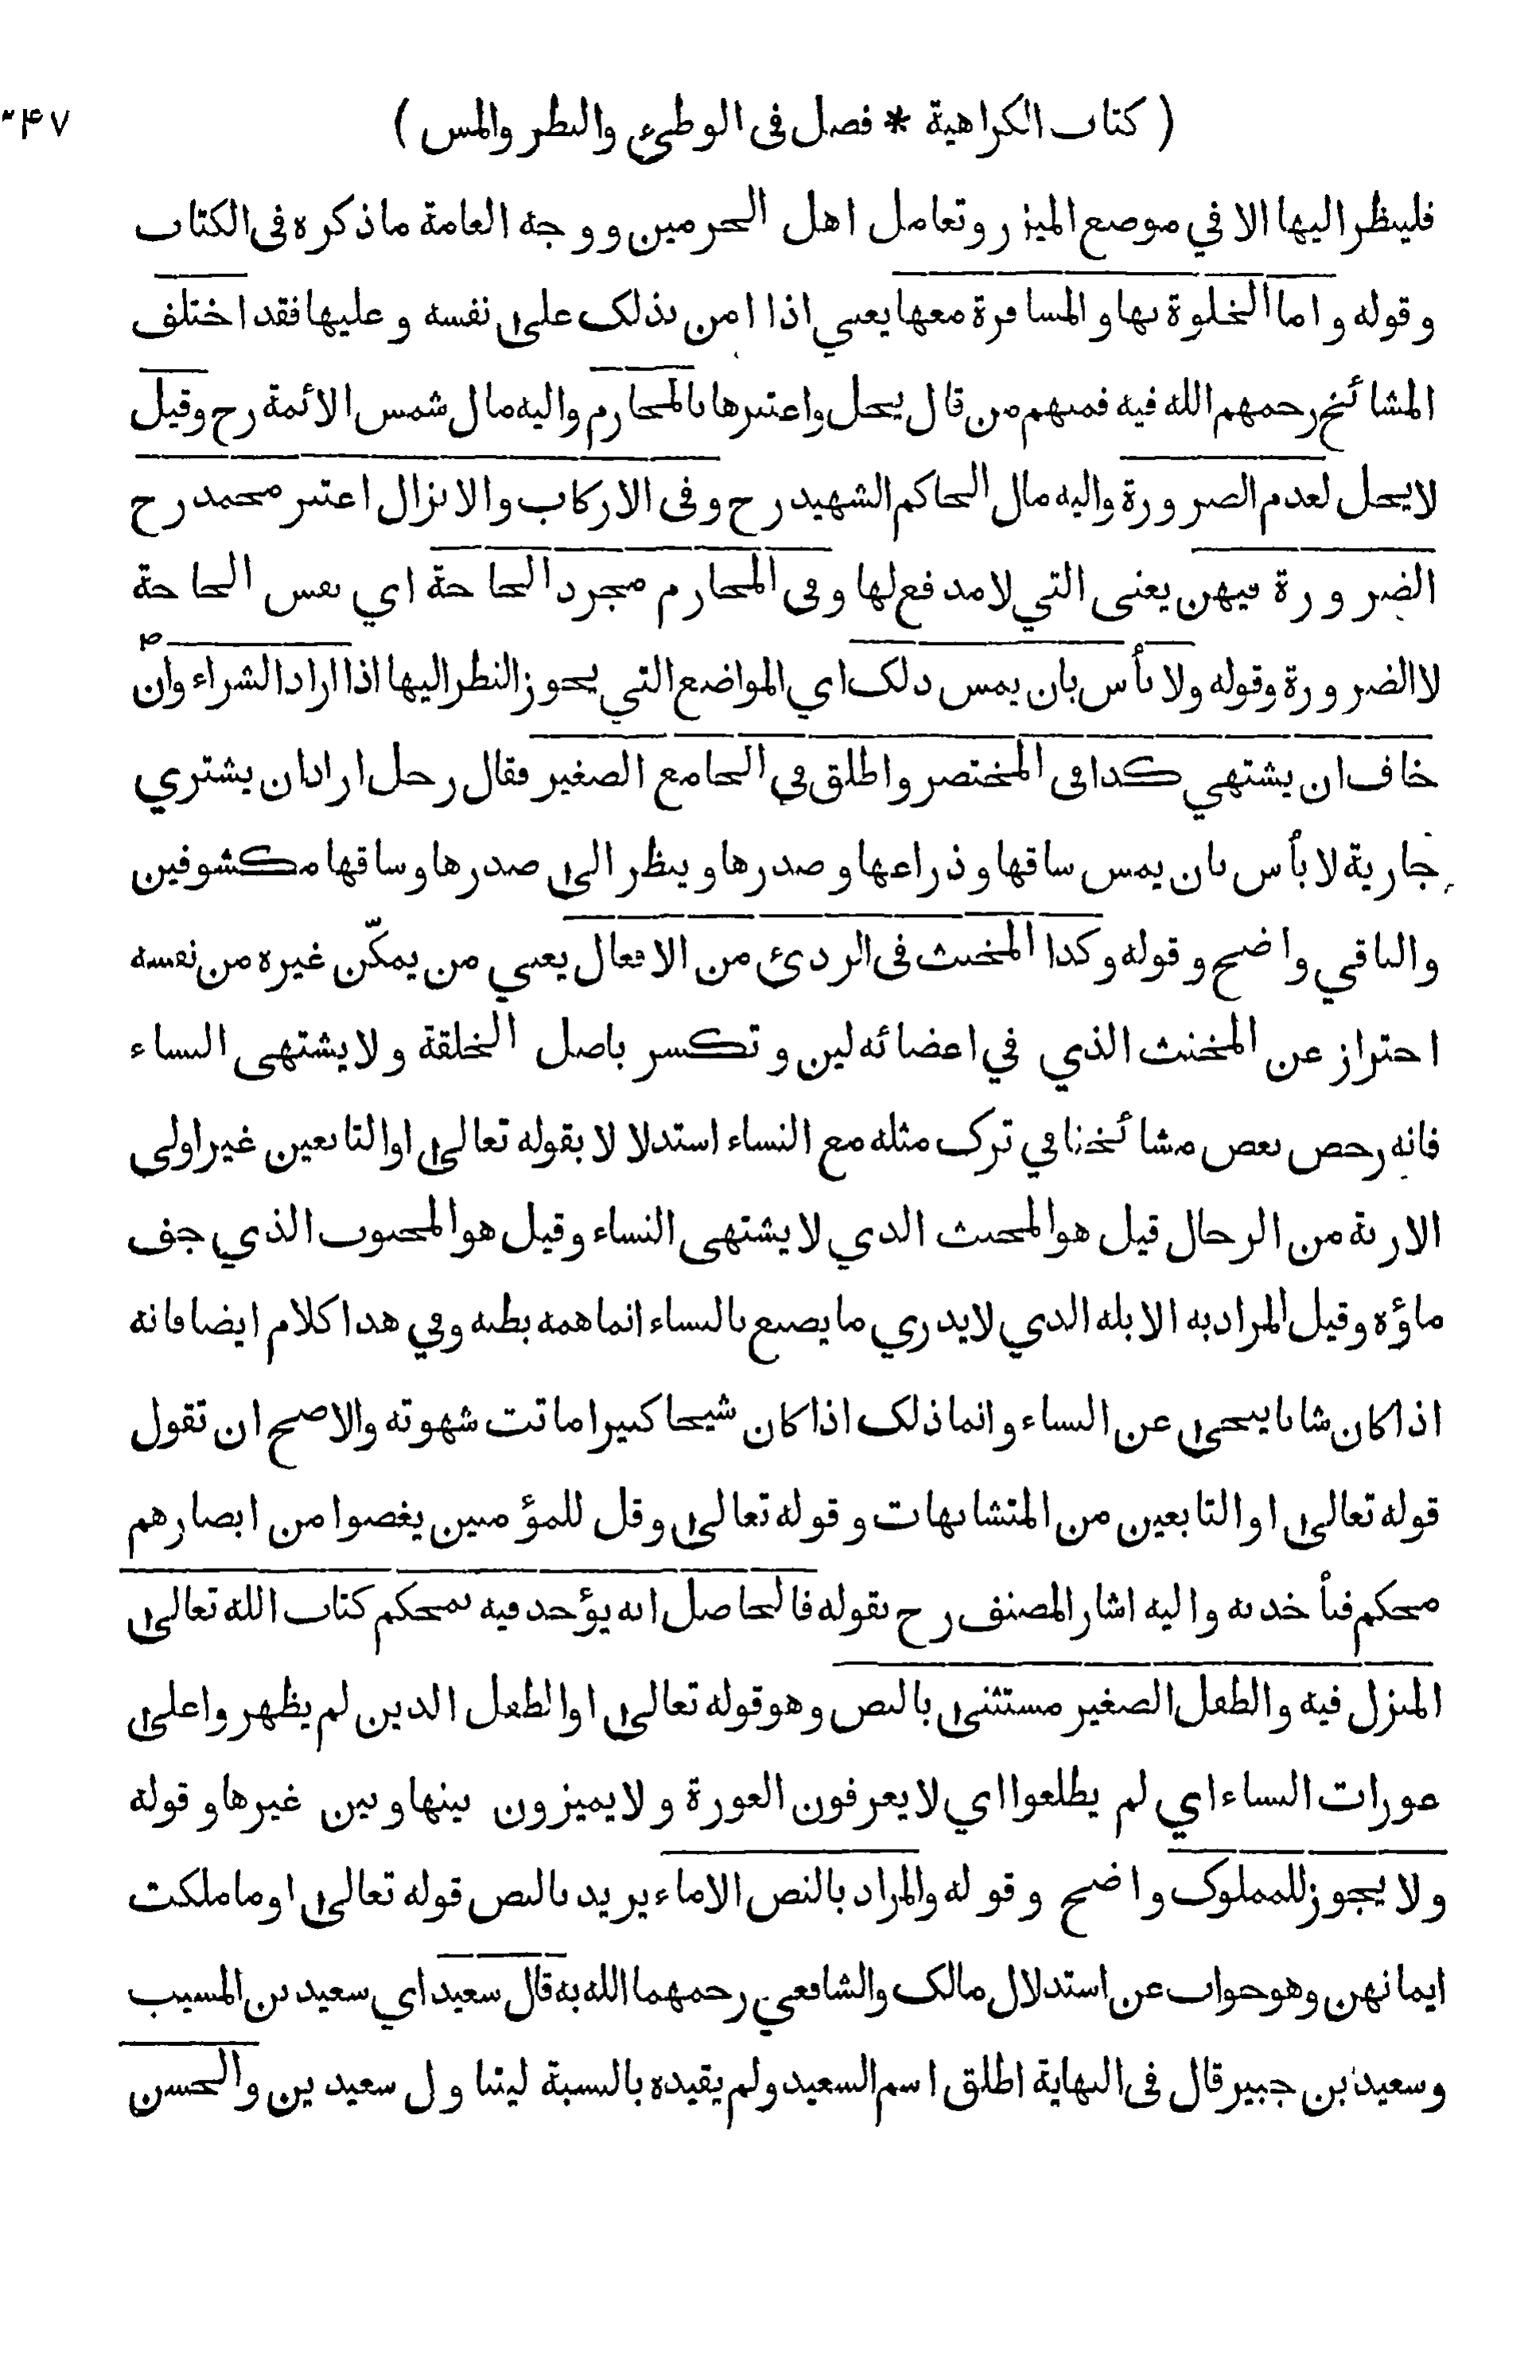 ( كتاب الكراهية * فصل فى الوطىء والنظر والمس ) ٣٤٧
فلينظر اليها الا في موضع الميزر وتعامل اهل الحرمين ووجه العامة ماذكره فى الكتاب
وقوله واما الخلوة بها والمسافرة معها يعني اذا امن بذلك على نفسه وعليها فقد اختلف
المشائخ رحمهم الله فيه فمنهم من قال يحل واعتبرها بالمحارم واليه مال شمس الائمة رح وقيل
لايحل لعدم الضرورة واليه مال الحاكم الشهيد رح وفى الاركاب والانزال اعتبر محمد رح
الضرورة فيهن يعنى التي لا مدفع لها وفي المحارم مجرد الحاجة اي نفس الحاجة
لا الضرورة وقوله ولا بأس بان يمس ذلك اي المواضع التي يجوز النظر اليها اذا اراد الشراء وان
خاف ان يشتهي كذا فى المختصر واطلق في الجامع الصغير فقال رجل اراد ان يشتري
جارية لا بأس بان يمس ساقها وذراعها وصدرها وينظر الى صدرها وساقها مكشوفين
والباقي واضح وقوله وكذا المخنث فى الردئ من الافعال يعني من يمكّن غيره من نفسه
احتراز عن المخنث الذي في اعضائه لين وتكسر باصل الخلقة ولا يشتهى النساء
فانه رخص بعض مشائخنا في ترك مثله مع النساء استدلالا بقوله تعالى او التابعين غير اولى
الاربة من الرجال قيل هو المخنث الذي لا يشتهى النساء وقيل هو المجبوب الذي جف
ماؤه وقيل المراد به الابله الذي لا يدري ما يصنع بالنساء انما همه بطنه وفي هذا كلام ايضا فانه
اذا كان شابا ينحى عن النساء وانما ذلك اذا كان شيخا كبيرا ماتت شهوته والاصح ان تقول
قوله تعالى او التابعين من المتشابهات وقوله تعالى وقل للمؤمنين يغضوا من ابصارهم
محكم فنأخذ به واليه اشار المصنف رح بقوله فالحاصل انه يؤخذ فيه بمحكم كتاب الله تعالى
المنزل فيه والطفل الصغير مستثنى بالنص وهو قوله تعالى او الطفل الذين لم يظهروا على
عورات النساء اي لم يطلعوا اي لا يعرفون العورة ولا يميزون بينها وبين غيرها وقوله
ولا يجوز للمملوك واضح وقوله والمراد بالنص الاماء يريد بالنص قوله تعالى او ما ملكت
ايمانهن وهو جواب عن استدلال مالك والشافعي رحمهما الله به قال سعيد اي سعيد بن المسيب
وسعيد بن جبير قال فى النهاية اطلق اسم السعيد ولم يقيده بالنسبة ليتناول سعيدين والحسن